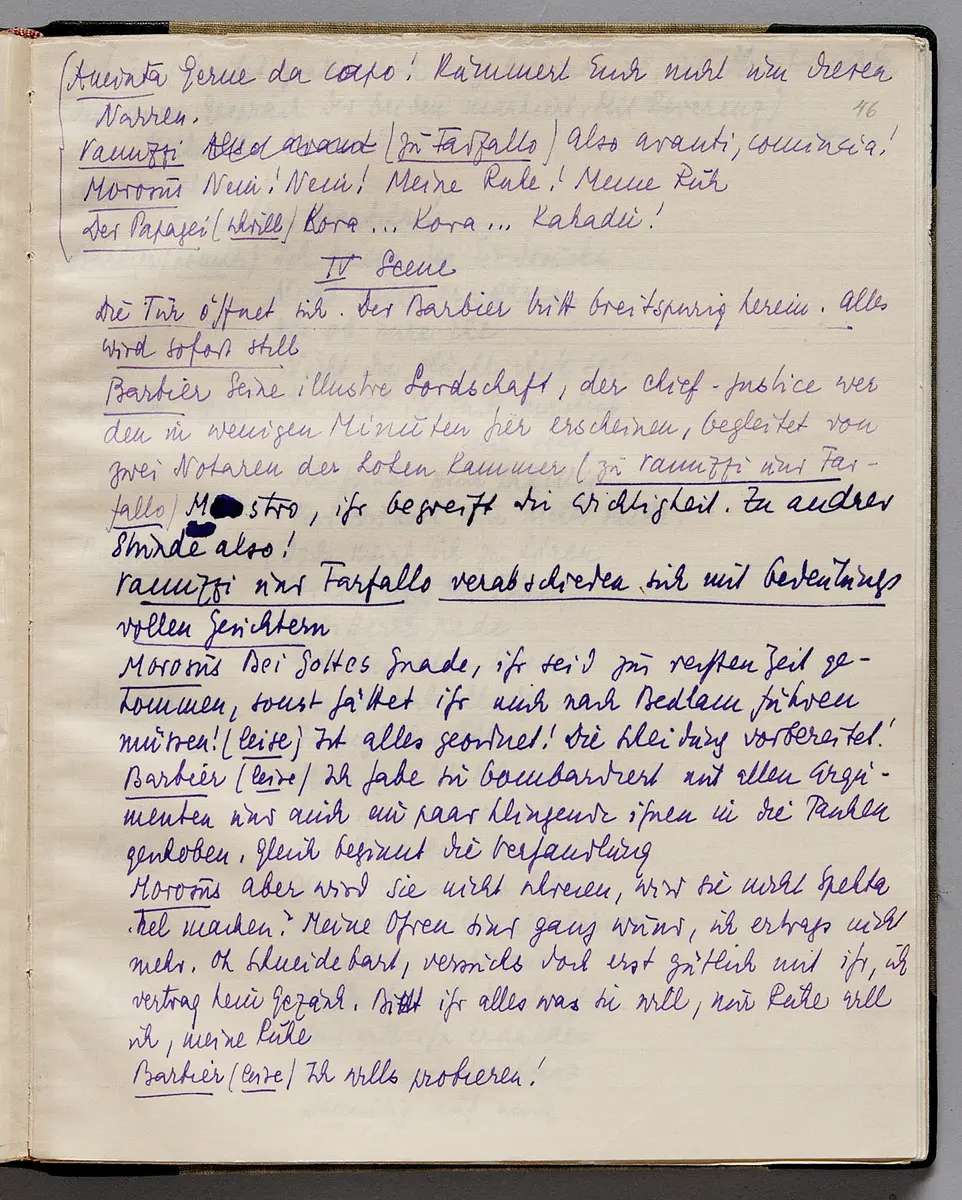 Aminta Gerne da capo! Kümmert Euch nicht um diesen
46
Narren.
Vanuzzi Also avanti (zu Farfallo) also avanti, comincia!
Morosus Nein! Nein! Meine Ruhe! Meine Ruh
Der Papagei (schrill) Kora ... Kora ... Kakadu!
IV Scene
Die Tür öffnet sich. Der Barbier tritt breitspurig herein. Alles
wird sofort still
Barbier Seine illustre Lordschaft, der chief-justice wer
den in wenigen Minuten hier erscheinen, begleitet von
zwei Notaren der hohen Kammer (zu Vanuzzi und Far-
fallo) Maestro, ihr begreift die Wichtigkeit. Zu andrer
Stunde also!
Vanuzzi und Farfallo verabschieden sich mit bedeutungs
vollen Gesichtern
Morosus Bei Gottes Gnade, ihr seid zur rechten Zeit ge-
kommen, sonst hättet ihr mich nach Bedlam führen
müssen! (leise) Ist alles geordnet! Die Scheidung vorbereitet!
Barbier (leise) Ich habe sie bombardiert mit allen Argu-
menten und auch ein paar klingende ihnen in die Taschen
geschoben. Gleich beginnt die Verhandlung
Morosus Aber wird sie nicht schreien, wird sie nicht Spekta
kel machen? Meine Ohren sind ganz wund, ich ertrags nicht
mehr. Oh Schneidebart, versuchs doch erst gütlich mit ihr, ich
vertrag kein Gezänk. Biet ihr alles was sie will, nur Ruhe will
ich, meine Ruhe
Barbier (leise) Ich wills probieren!